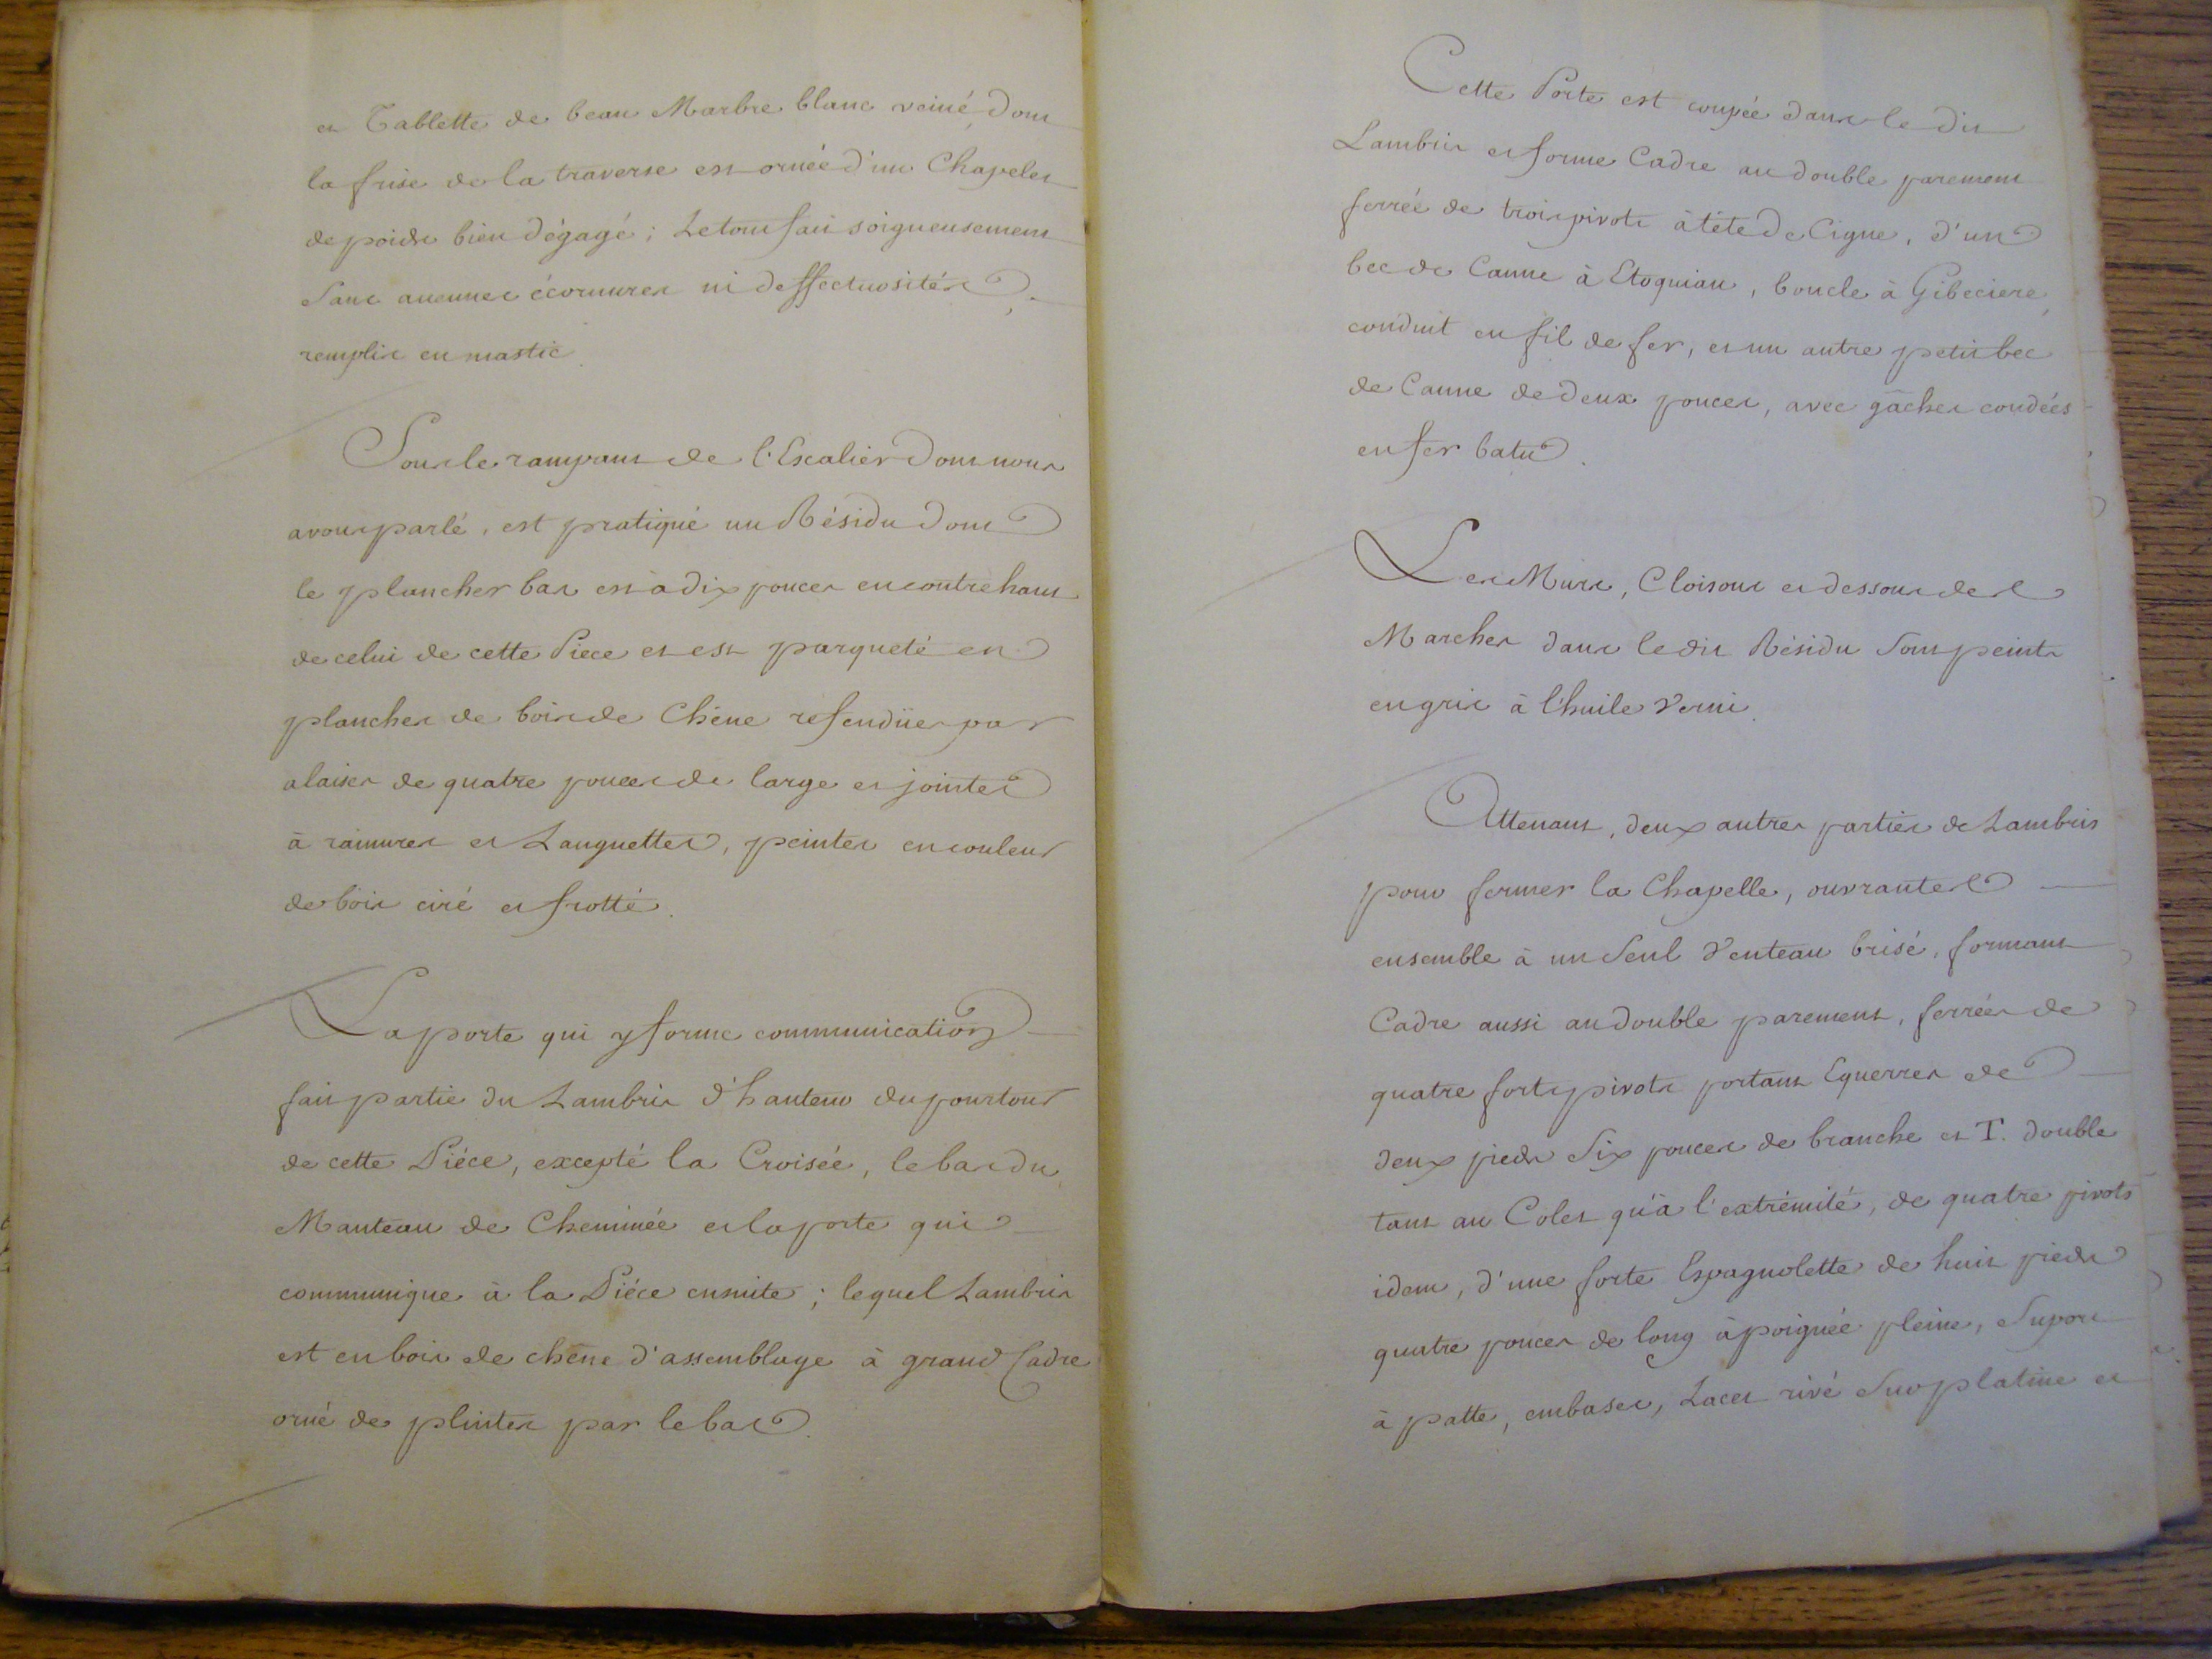 et Tablette de beau Marbre blanc veiné, dont
la frise de la traverse est ornée d'un Chapelet
de poids bien dégagé ; Le tout fait soigneusement
Sans aucunes écornures ni deffectuosités,
remplis en mastic.
Sous le rampant de l'Escalier dont nous
avons parlé, est pratiqué un Résidu dont
le plancher bas est à dix pouces en contre haut
de celui de cette Piece et est parqueté en
planches de bois de Chêne refendües par
alaises de quatre pouces de large et jointes
à rainures et Languettes, peintes en couleur
de bois ciré et frotté.
La porte qui y forme communication
fait partie du Lambris d'hauteur du pourtour
de cette Piéce, excepté la Croisée, le bas du
Manteau de Cheminée et la porte qui
communique à la Piéce ensuite ; lequel Lambris
est en bois de chêne d'assemblage à grand Cadre
orné de plintes par le bas.
Cette Porte est coupée dans le dit
Lambris et forme Cadre au double parement
ferrée de trois pivots à tête de Cigne, d'un
bec de Canne à Etoquiau, boucle à Gibeciere,
conduit en fil de fer, et un autre petit bec
de Canne de deux pouces, avec gâches coudées
en fer batu.
Les Murs, Cloisons et dessous des
Marches dans le dit Résidu Sont peints
en gris à l'huile Verni.
Attenant, deux autres parties de Lambris
pour fermer la Chapelle, ouvrantes
ensemble à un Seul Venteau brisé, formant
Cadre aussi au double parement, ferrées de
quatre forts pivots portant Equerres de
deux pieds Six pouces de branche et T. double
tant au Colet qu'à l'extrémité, de quatre pivots
idem, d'une forte Espagnolette de huit pieds
quatre pouces de long à poignée pleine, Suport
à patte, embases, Lacet rivé Sur platine et